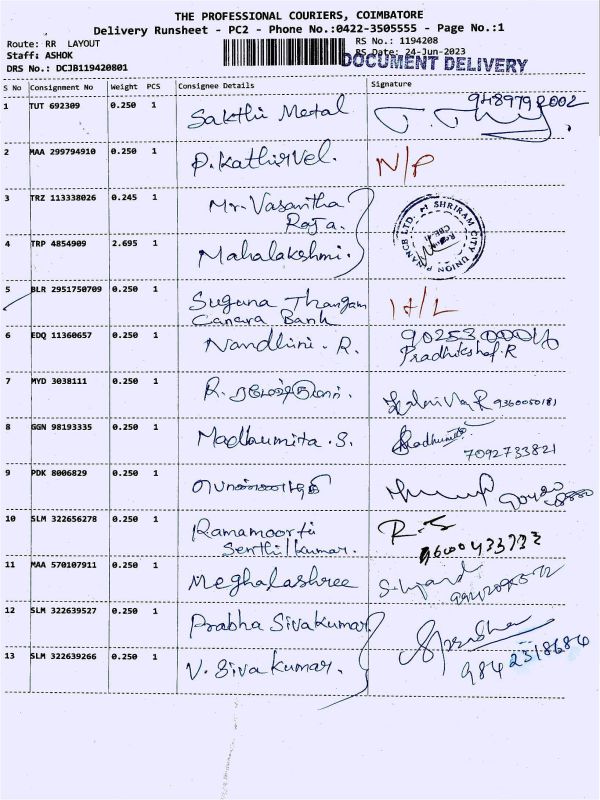 THE PROFESSIONAL COURIERS, COIMBATORE
Delivery Runsheet - PC2 - Phone No.:0422-3505555 - Page No.:1
Route: RR LAYOUT RS No.: 1194208
Staff: ASHOK RS Date: 24-Jun-2023
DRS No.: DCJB119420801 DOCUMENT DELIVERY
S No Consignment No Weight PCS Consignee Details Signature
1 TUT 692309 0.250 1 Sakthi Metal 9489792002
2 MAA 299794910 0.250 1 P. Kathirvel. N/P
3 TRZ 113338026 0.245 1 Mr. Vasantha
Raja.
SHRIRAM CITY UNION FINANCE LTD.
4 TRP 4854909 2.695 1 Mahalakshmi.
5 BLR 2951750709 0.250 1 Suguna Thangam
Canara Bank
6 EDQ 11360657 0.250 1 Nandhini. R.
7 MYD 3038111 0.250 1 R. 9360050181
8 GGN 98193335 0.250 1 Madhumita. S. Madhumita
7092733821
9 PDK 8006829 0.250 1
10 SLM 322656278 0.250 1 Ramamoorti
Senthilkumar. R.S
9600433732
11 MAA 570107911 0.250 1 Meghalashree
12 SLM 322639527 0.250 1 Prabha Sivakumar
13 SLM 322639266 0.250 1 V. Sivakumar. 9842318684